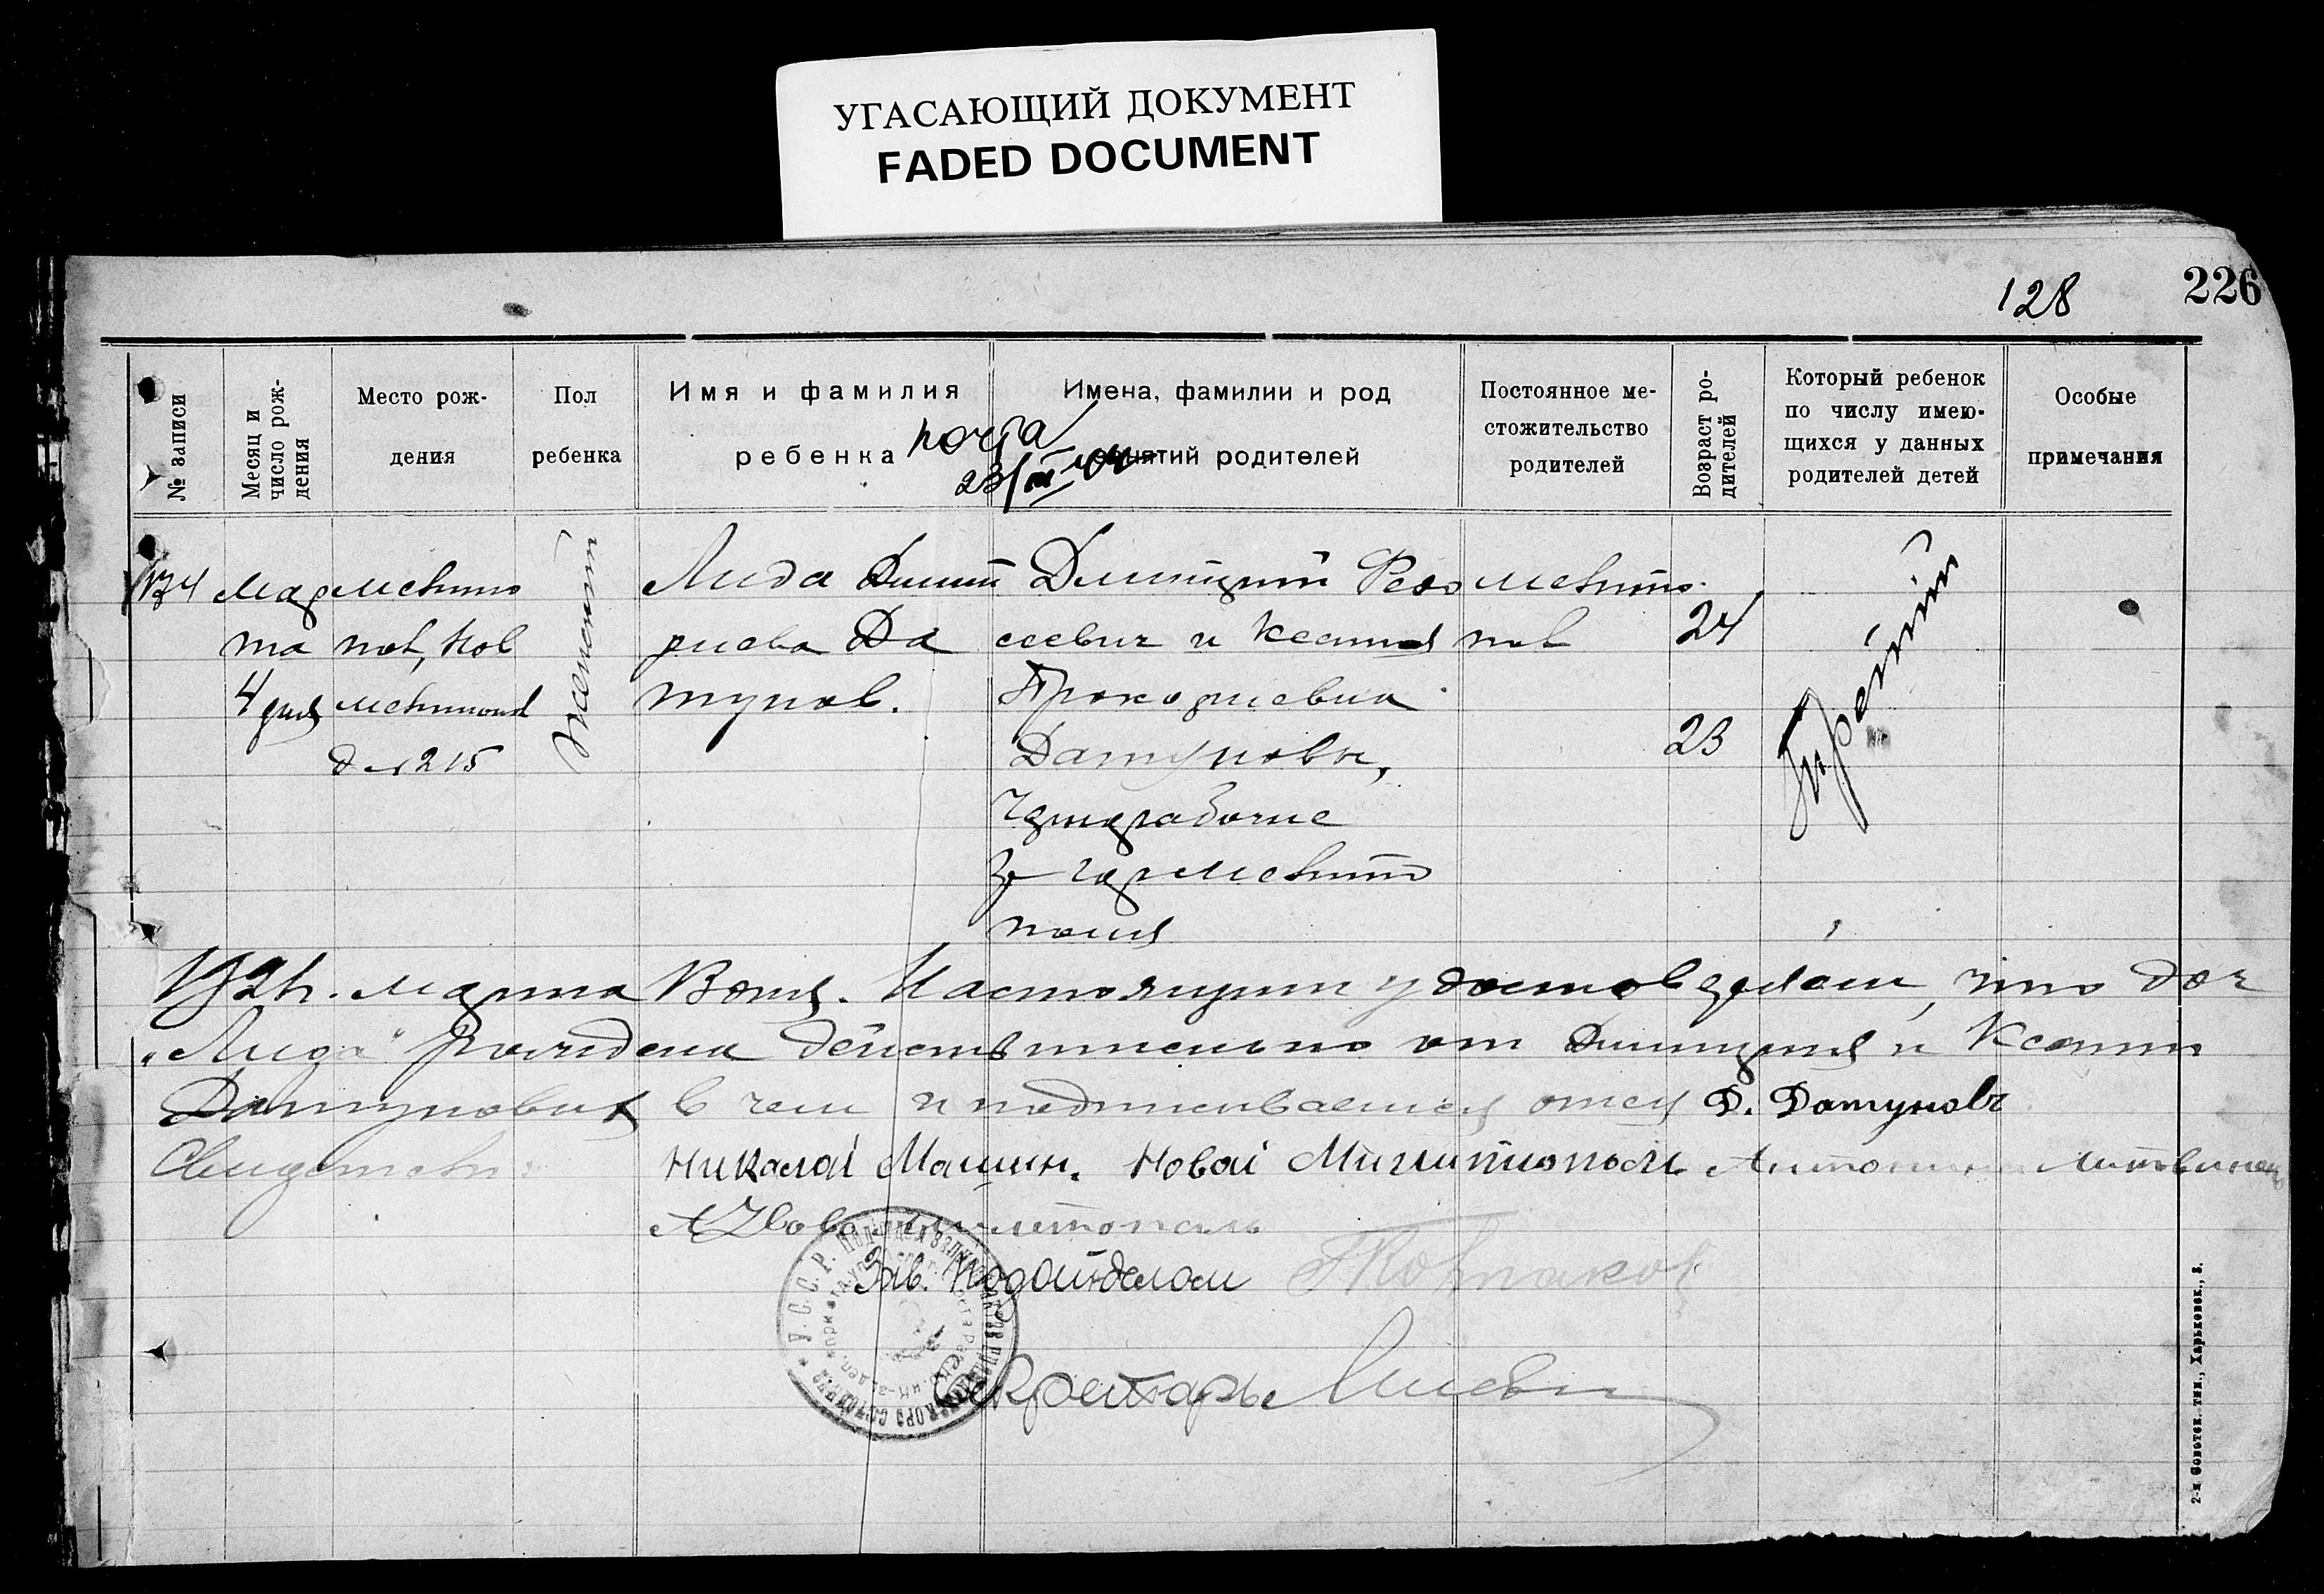 УГАСАЮЩИЙ ДОКУМЕНТ
FADED DOCUMENT
128
226
№ записи
Месяц и число рождения
Место рож-
дения
Пол
ребенка
Имя и фамилия
ребенка
Имена, фамилии и род
занятий родителей
Постоянное ме-
стожительство
родителей
Возраст ро-
дителей
Который ребенок
по числу имею-
щихся у данных
родителей детей
Особые
примечания
почта
23/III
134
мар
та
4 дня
Мелито
пол, Нов
Мелитопол
д. 215
Женский
Лида Дмит
риева Да
тунов.
Дмитрий Федо
сеевич и Ксения
Прокофиевна
Датуновы,
Чернорабочие
гор Мелито
поля
Мелито
пол
24
23
Третий
марта Настоящим удостоверяем, что доч
„Лида" рождена действительно от Дмитрия и Ксении
Датуновых в чем и подписываемся отец Д. Датуновъ
Свидетели:
Николай Машин. Новой Мелитополь Литвиненко
Зав. Подотделом
Секретарь
У.С.С.Р.
2-я Советск. тип., Харьковск., 8.